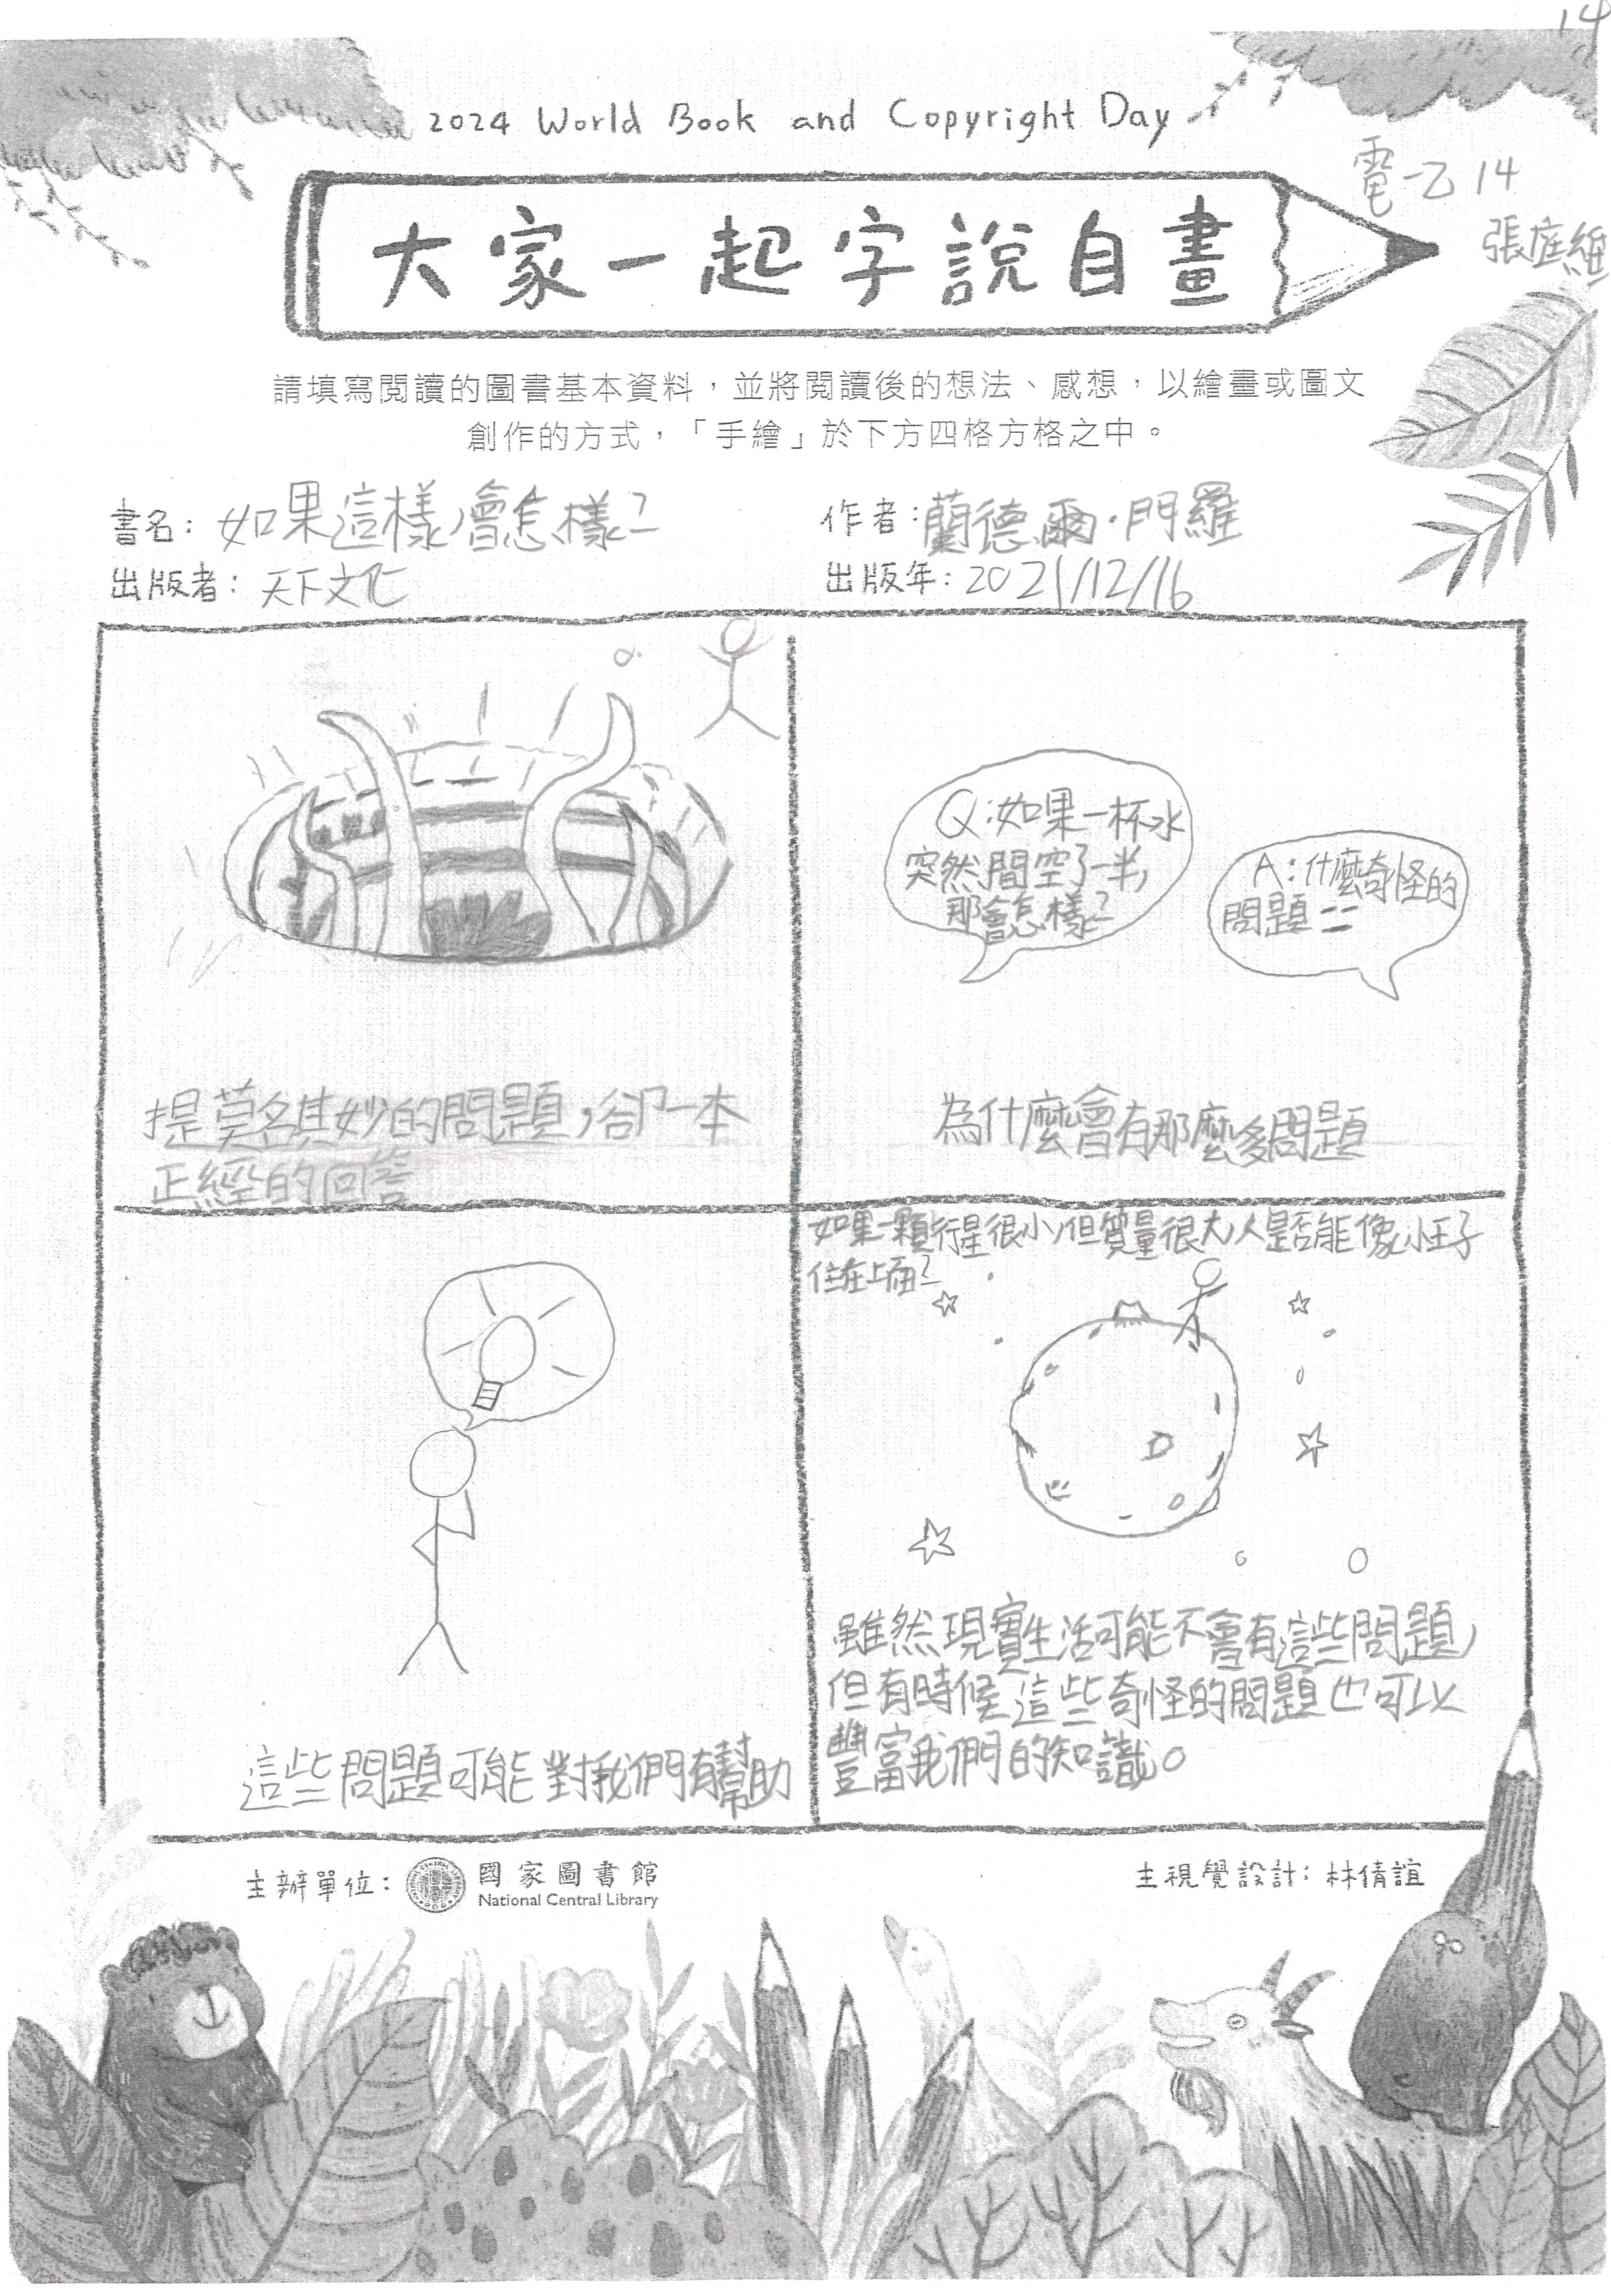 14
2024 World Book and Copyright Day
電一乙 14
張庭維
大家一起字說自畫
請填寫閱讀的圖書基本資料，並將閱讀後的想法、感想，以繪畫或圖文
創作的方式，「手繪」於下方四格方格之中。
書名：如果這樣，會怎樣？
作者：蘭德爾·門羅
出版者：天下文化
出版年：2021/12/16
提莫名其妙的問題，卻一本
正經的回答
Q:如果一杯水
突然間空了一半，
那會怎樣？
A:什麼奇怪的
問題==
為什麼會有那麼多問題
這些問題可能對我們有幫助
如果一顆行星很小，但質量很大，人是否能像小王子
住在上面？
雖然現實生活可能不會有這些問題，
但有時候這些奇怪的問題也可以
豐富我們的知識。
主辦單位：
國家圖書館
National Central Library
主視覺設計：林倩誼